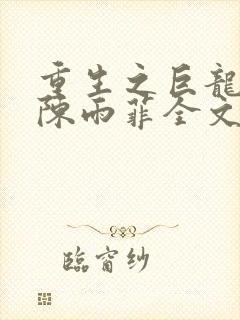 重生之巨龍
陳雨菲全文
臨窗紗